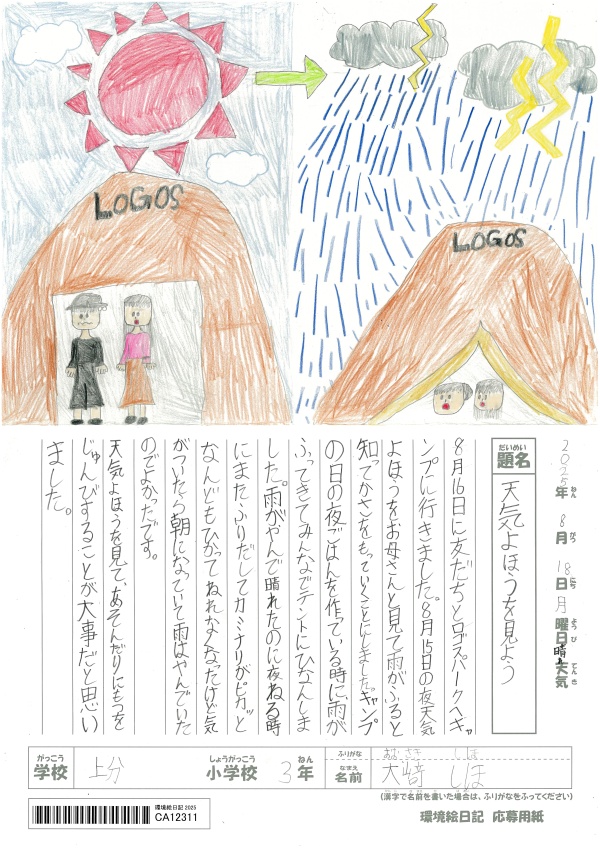 LOGOS
LOGOS
2025年 8月 18日 月曜日 晴れ 天気
ねん がつ にち ようび てんき
だいめい
題名 天気よほうを見よう
8月16日に友だちとロゴスパークへキャ
ンプに行きました。8月15日の夜天気
よほうをお母さんと見て雨がふると
知ってかさをもっていくことにしました。キャンプ
の日の夜ごはんを作っている時に雨が
ふってきてみんなでテントにひなんしま
した。雨がやんで晴れたのに夜ねる時
にまたふりだしてカミナリがピカッと
なんどもひかってねれなくなったけど気
がついたら朝になっていて雨はやんでいた
のでよかったです。
天気よほうを見て、あそんだりにもつを
じゅんびすることが大事だと思い
ました。
がっこう しょうがっこう ねん
学校 上分 小学校 3年
ふりがな おおさき しほ
なまえ
名前 大﨑 しほ
(漢字で名前を書いた場合は、ふりがなをふってください)
環境絵日記 2025
CA12311
環境絵日記 応募用紙